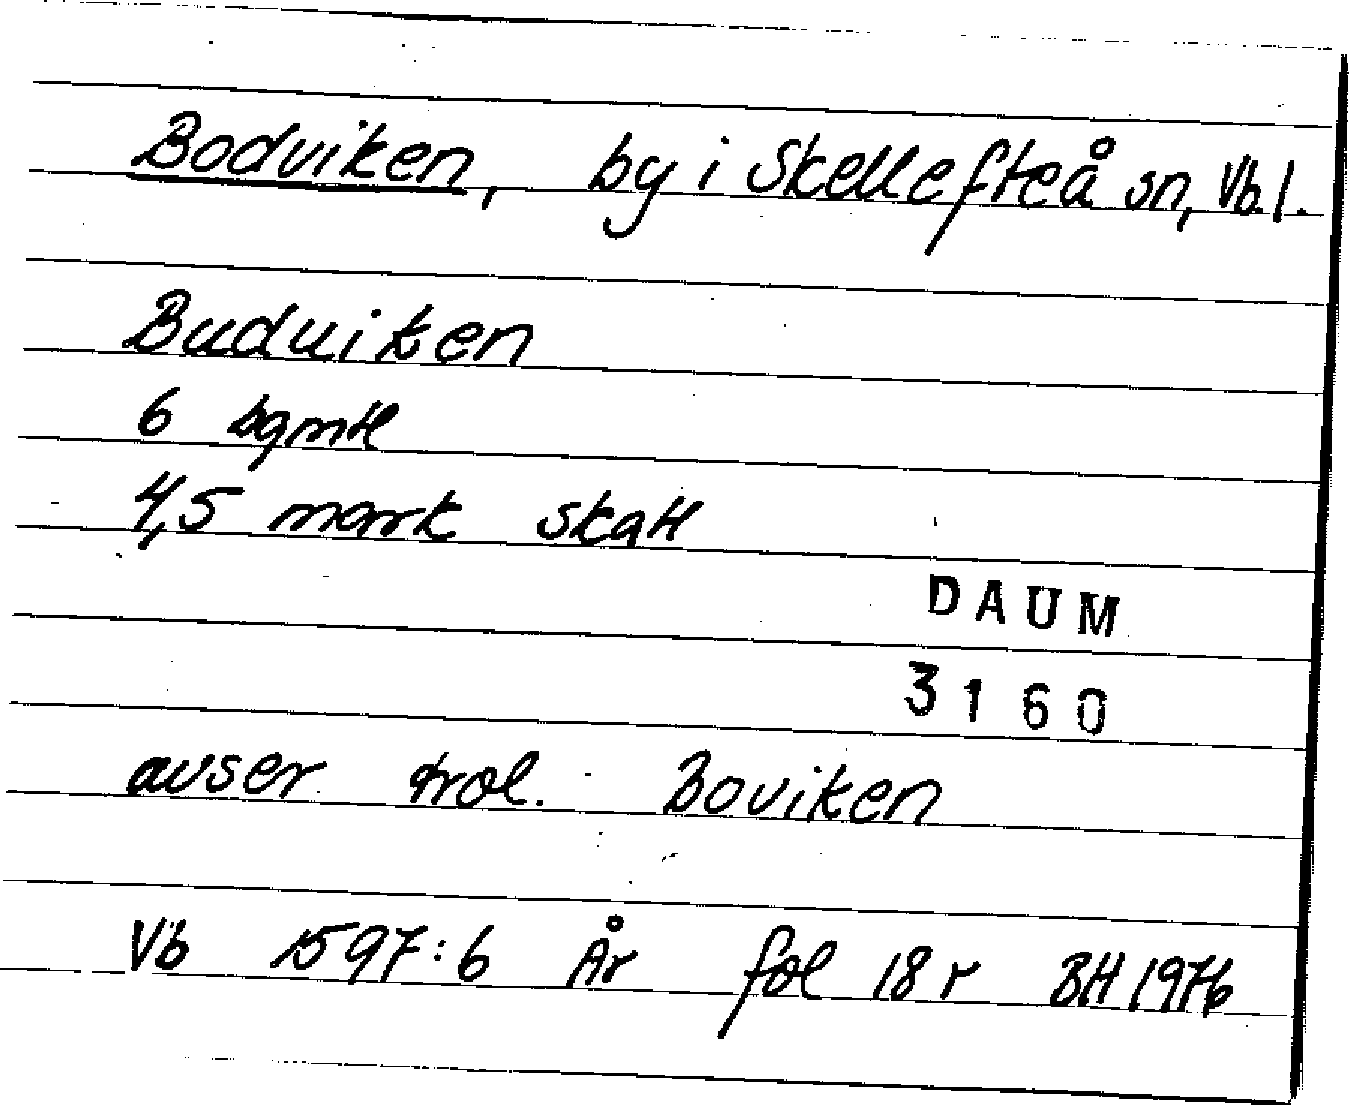 Bodviken, by i Skellefteå sn, Vb. l.
Buduiken
6 bgmtl
4,5 mark skatt
DAUM
3160
avser trol. Boviken
Vb 1597:6 År fol 18 r BH 1976